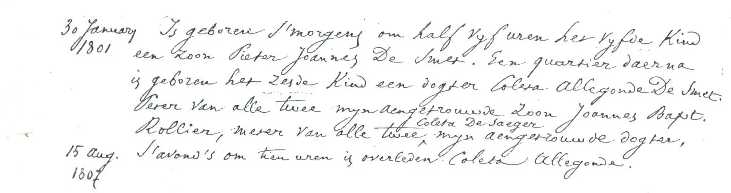 30 January Is geboren S'morgens om half vyf uren het vyfde Kind
1801 een zoon Pieter Joannes De Smet. Een quartier daerna
is geboren het zesde Kind een dogter Coleta Allegonde De Smet.
Peter van alle twee myn aengetrouwde zoon Joannes Bapt.
Coleta De Saeger
Rollier, meter van alle twee myn aengetrouwde dogter,
15 aug. S'avond's om tien uren is overleden Coleta Allegonde.
1807